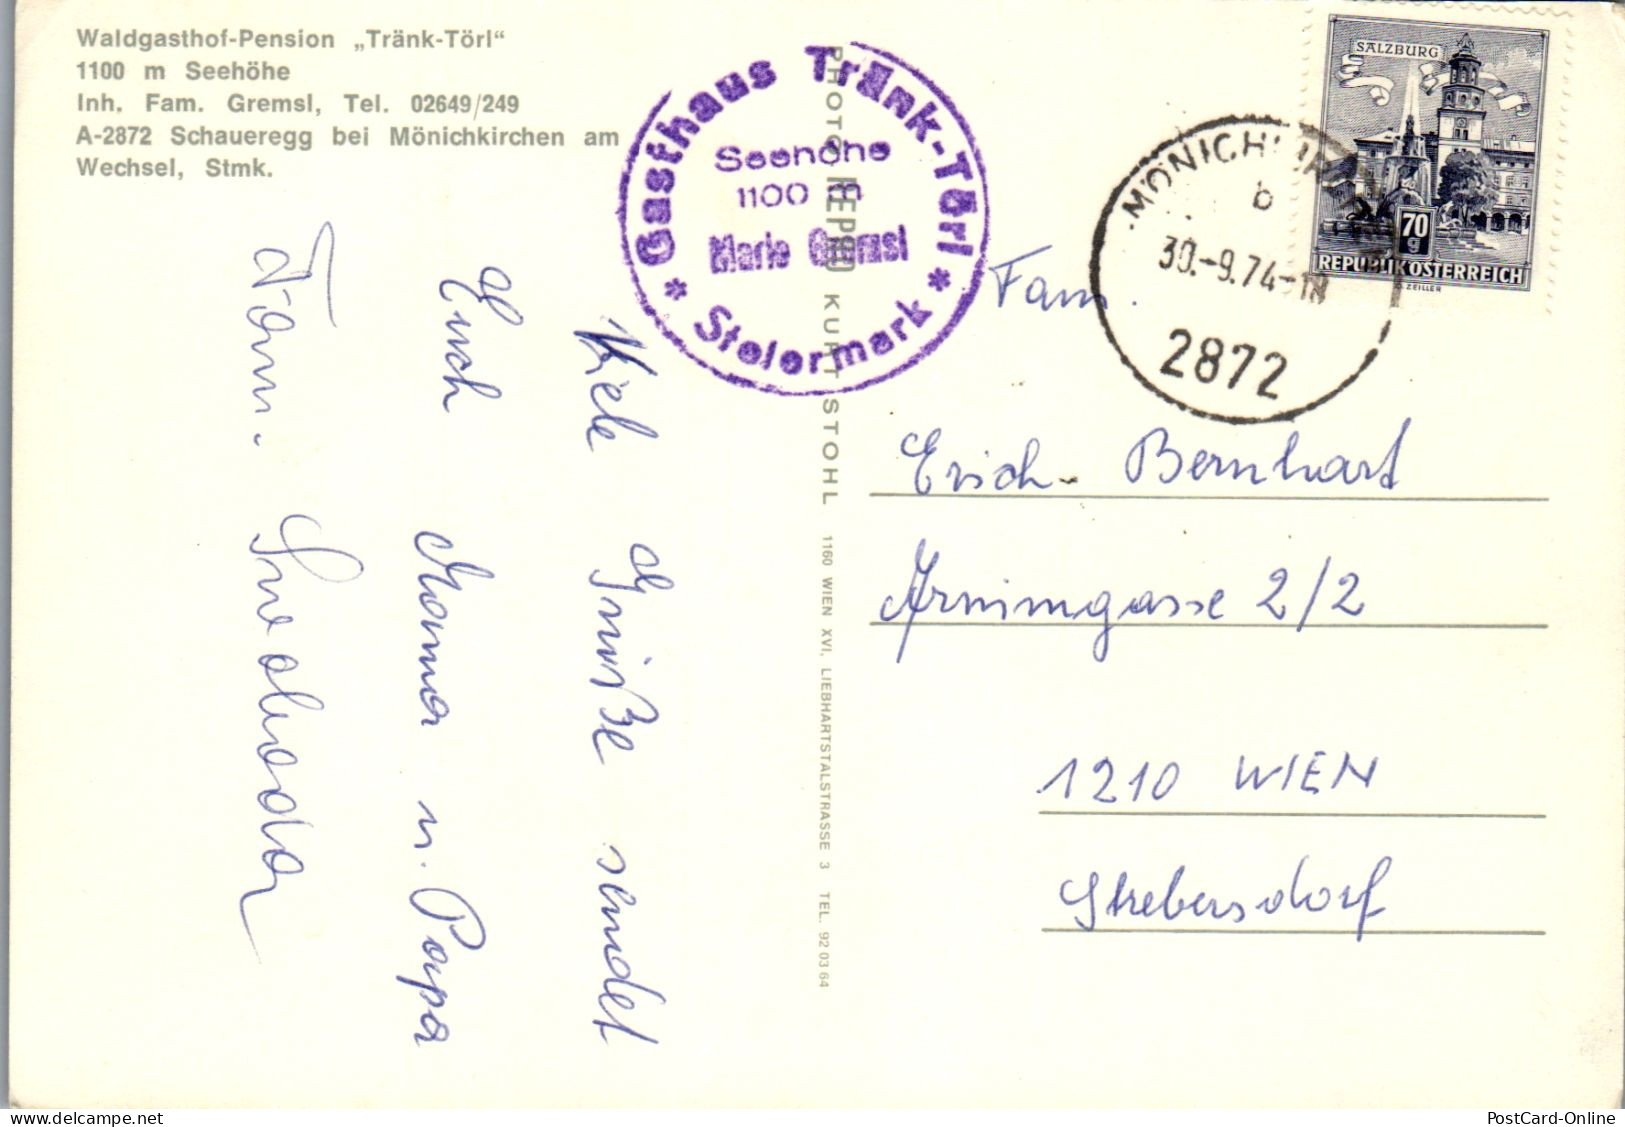 Waldgasthof-Pension „Tränk-Törl“
1100 m Seehöhe
Inh. Fam. Gremsl, Tel. 02649/249
A-2872 Schaueregg bei Mönichkirchen am
Wechsel, Stmk.
Gasthaus Tränk-Törl
Seehöhe
1100 m
Marie Gremsl
* Steiermark *
PHOTO KURT STOHL 1160 WIEN XVI, LIEBHARTSTALSTRASSE 3 TEL. 92 03 64
SALZBURG
70
g
REPUBLIK ÖSTERREICH
ZEILLER
b
30.-9.74-18
2872
Viele Grüße sendet
Euch Mama u. Papa
Fam.
Fam.
Erich Bernhart
Arnimgasse 2/2
1210 WIEN
Strebersdorf
PostCard-Online